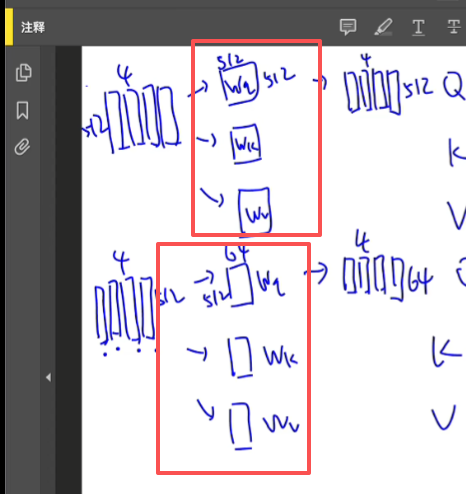 注释
4
512
512
Wq
512
4
512
Q
Wk
K
Wv
V
4
512
64
512
Wq
4
64
Wk
K
Wv
V